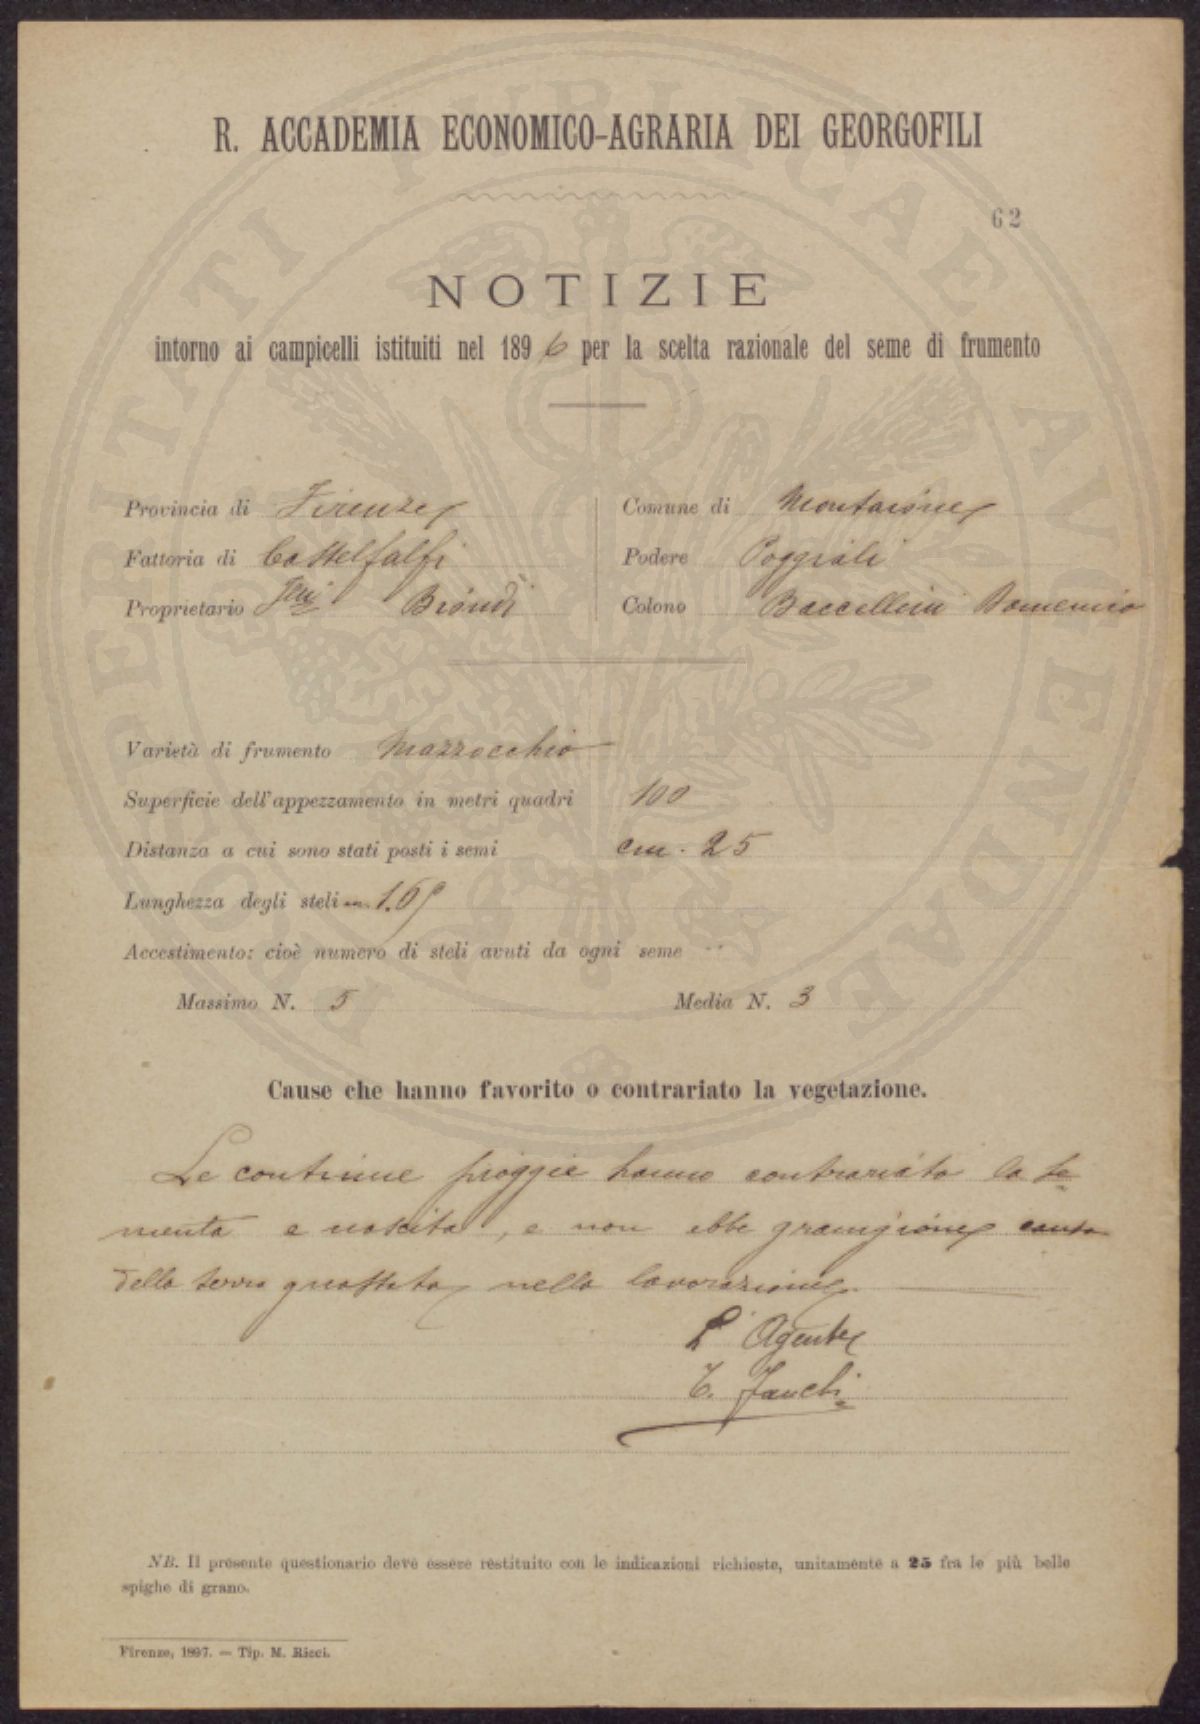 R. ACCADEMIA ECONOMICO-AGRARIA DEI GEORGOFILI
62
NOTIZIE
intorno ai campicelli istituiti nel 1896 per la scelta razionale del seme di frumento
Provincia di Firenze
Comune di Montaione
Fattoria di Castelfalfi
Podere Poggiali
Proprietario Biondi
Colono Baccellini Domenico
Varietà di frumento Mazzocchio
Superficie dell'appezzamento in metri quadri 100
Distanza a cui sono stati posti i semi cm. 25
Lunghezza degli steli m. 1.60
Accestimento: cioè numero di steli avuti da ogni seme
Massimo N. 5 Media N. 3
Cause che hanno favorito o contrariato la vegetazione.
Le continue pioggie hanno contrariato la se
menta e nascita, e non ebbe granigione causa
della terra guastata nella lavorazione.
L'Agente
NB. Il presente questionario deve essere restituito con le indicazioni richieste, unitamente a 25 fra le più belle
spighe di grano.
Firenze, 1897. — Tip. M. Ricci.
PROSPERITATI PUBLICAE AUGENDAE